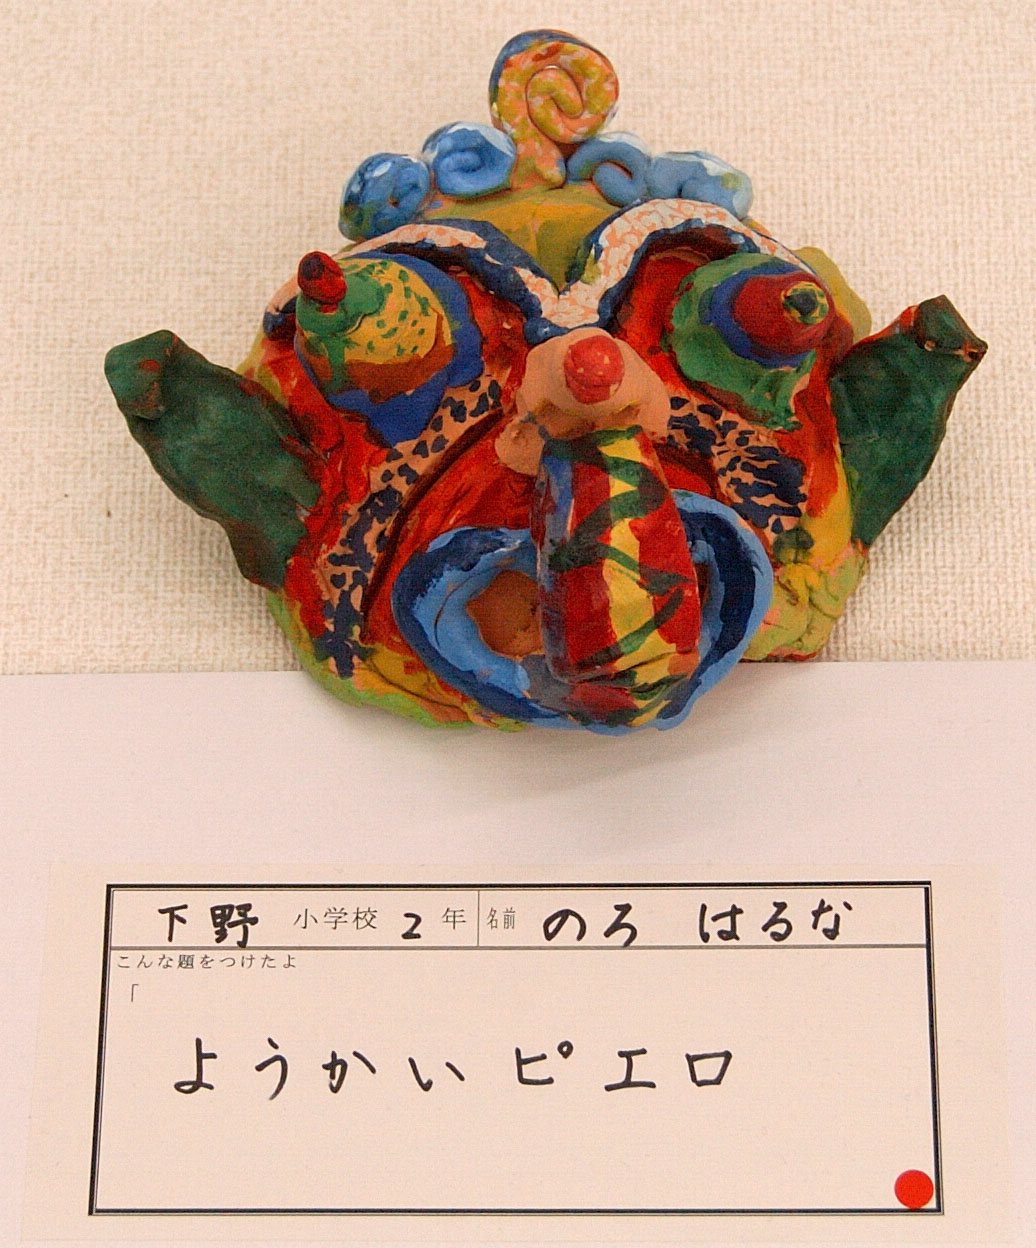 下野 小学校 2 年 名前 のろ はるな
こんな題をつけたよ
「
ようかいピエロ